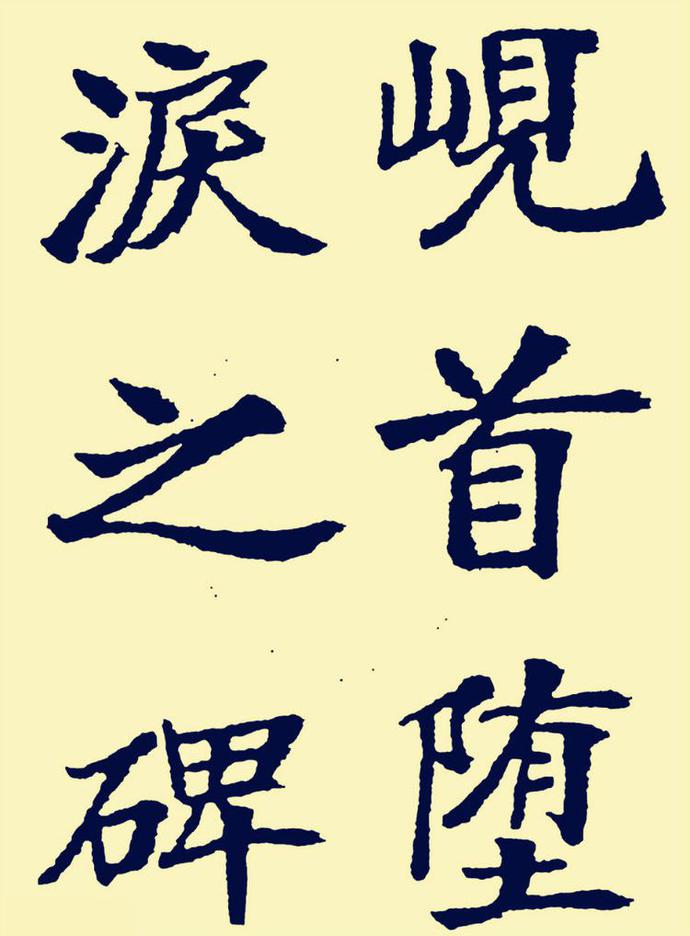 峴首堕
淚之碑